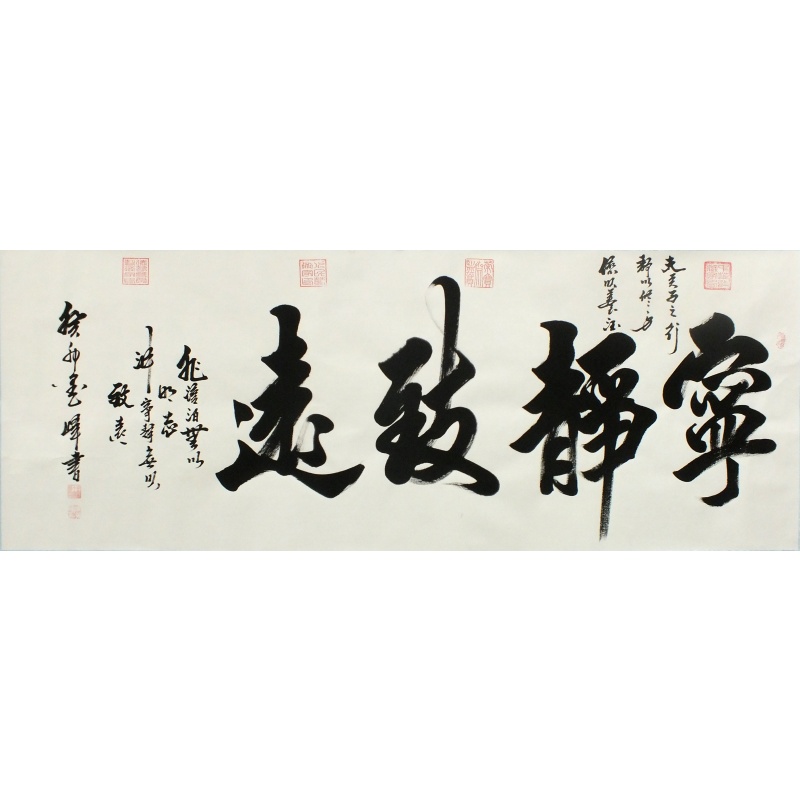 寧靜致遠
夫君子之行
靜以修身
儉以養德
非澹泊無以
明志
非寧靜無以
致遠
癸卯墨暉書